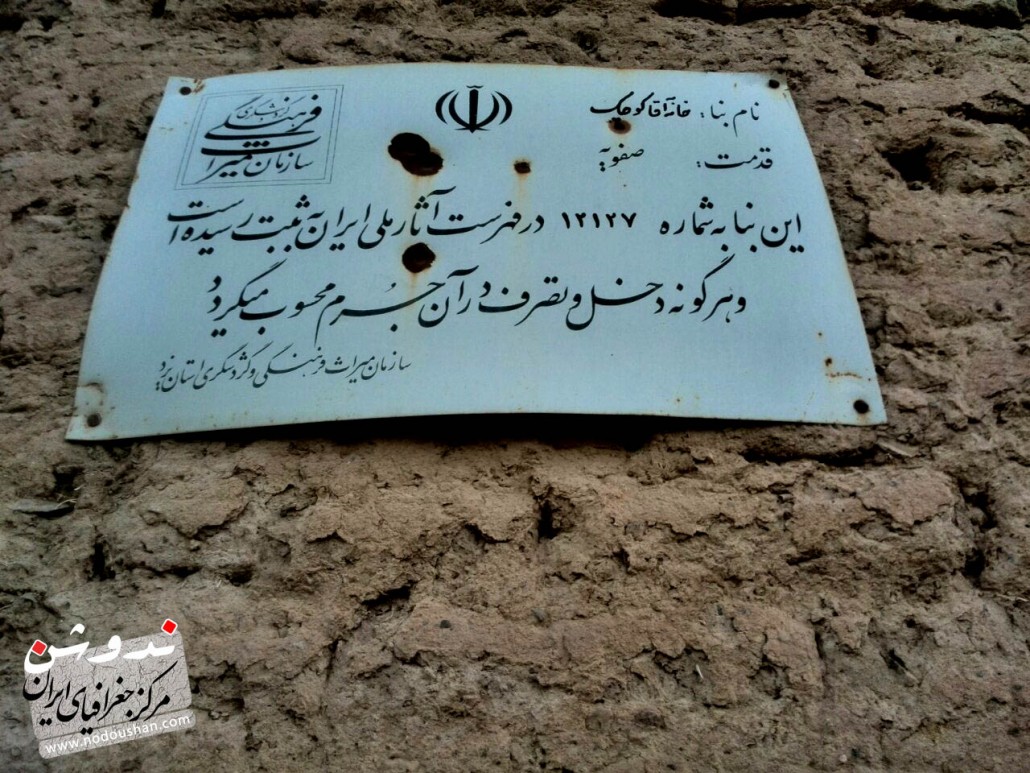 نام بنا: خانه آقا کوچک
قدمت: صفویه
سازمان میراث
فرهنگی
گردشگری
این بنا به شماره ۱۲۱۲۷ در فهرست آثار ملی ایران به ثبت رسیده است
و هر گونه دخل و تصرف در آن جرم محسوب میگردد
سازمان میراث فرهنگی و گردشگری استان یزد
ندوشن
مرکز جغرافیای ایران
www.nodoushan.com